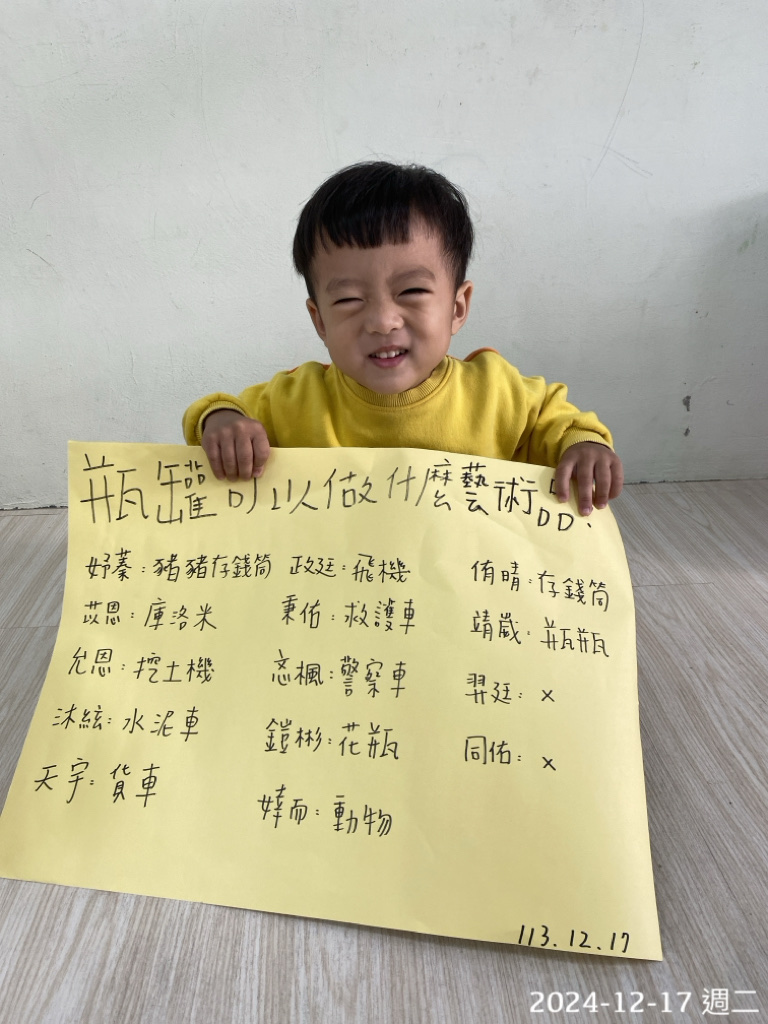 瓶罐可以做什麼藝術品.
妤蓁:豬豬存錢筒 政廷:飛機 侑晴:存錢筒
苡恩:庫洛米 秉佑:救護車 靖崴:瓶瓶
允恩:挖土機 忞楓:警察車 羿廷:x
沐紘:水泥車 鎧彬:花瓶 同佑:x
天宇:貨車 婞而:動物
113.12.17
2024-12-17 週二